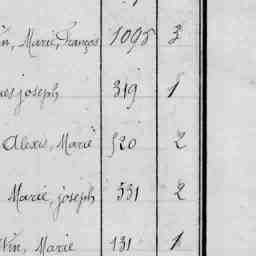 Marie, François 1095 3
joseph 319 1
Alexis, Marie 520 2
Marie, joseph 531 2
Marie 131 1